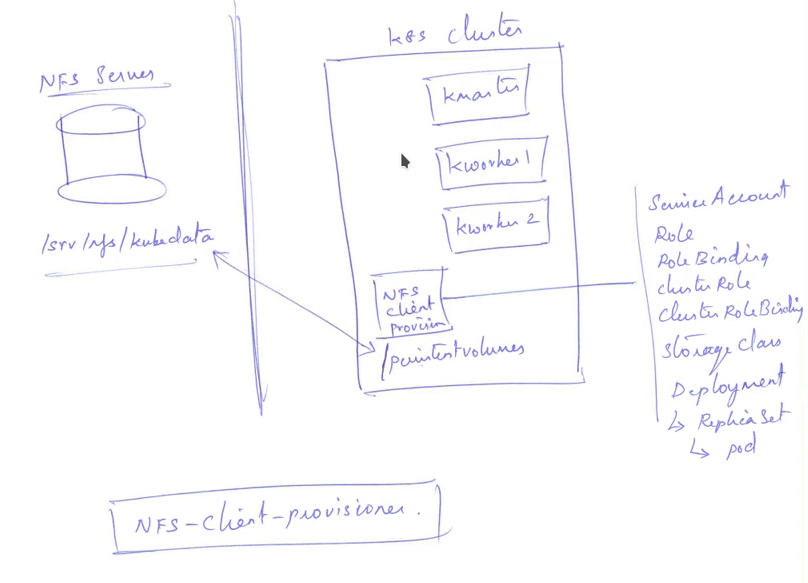 k8s cluster
NFS Server
kmaster
kworker 1
kworker 2
/srv/nfs/kubedata
NFS
client
provision
/persistentvolumes
Service Account
Role
Role Binding
cluster Role
Cluster Role Binding
Storage Class
Deployment
↳ Replica Set
↳ pod
NFS-client-provisioner.